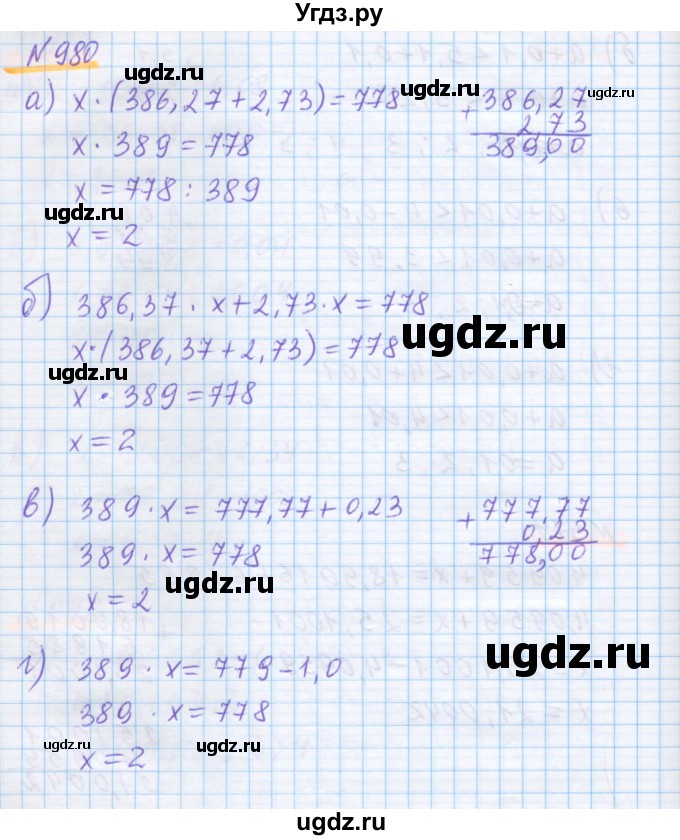 Угдз.ру
N 980
ugdz.ru
ugdz.ru
ugdz.ru
а) x · (386,27 + 2,73) = 778
+ 386,27
2,73
389,00
x · 389 = 778
x = 778 : 389
ugdz.ru
x = 2
б) 386,37 · x + 2,73 · x = 778
ugdz.ru
x · (386,37 + 2,73) = 778
ugdz.ru
x · 389 = 778
x = 2
в) 389 · x = 777,77 + 0,23
+ 777,77
0,23
778,00
389 · x = 778
ugdz.ru
x = 2
г) 389 · x = 779 - 1,0
ugdz.ru
389 · x = 778
ugdz.ru
ugdz.ru
x = 2
ugdz.ru